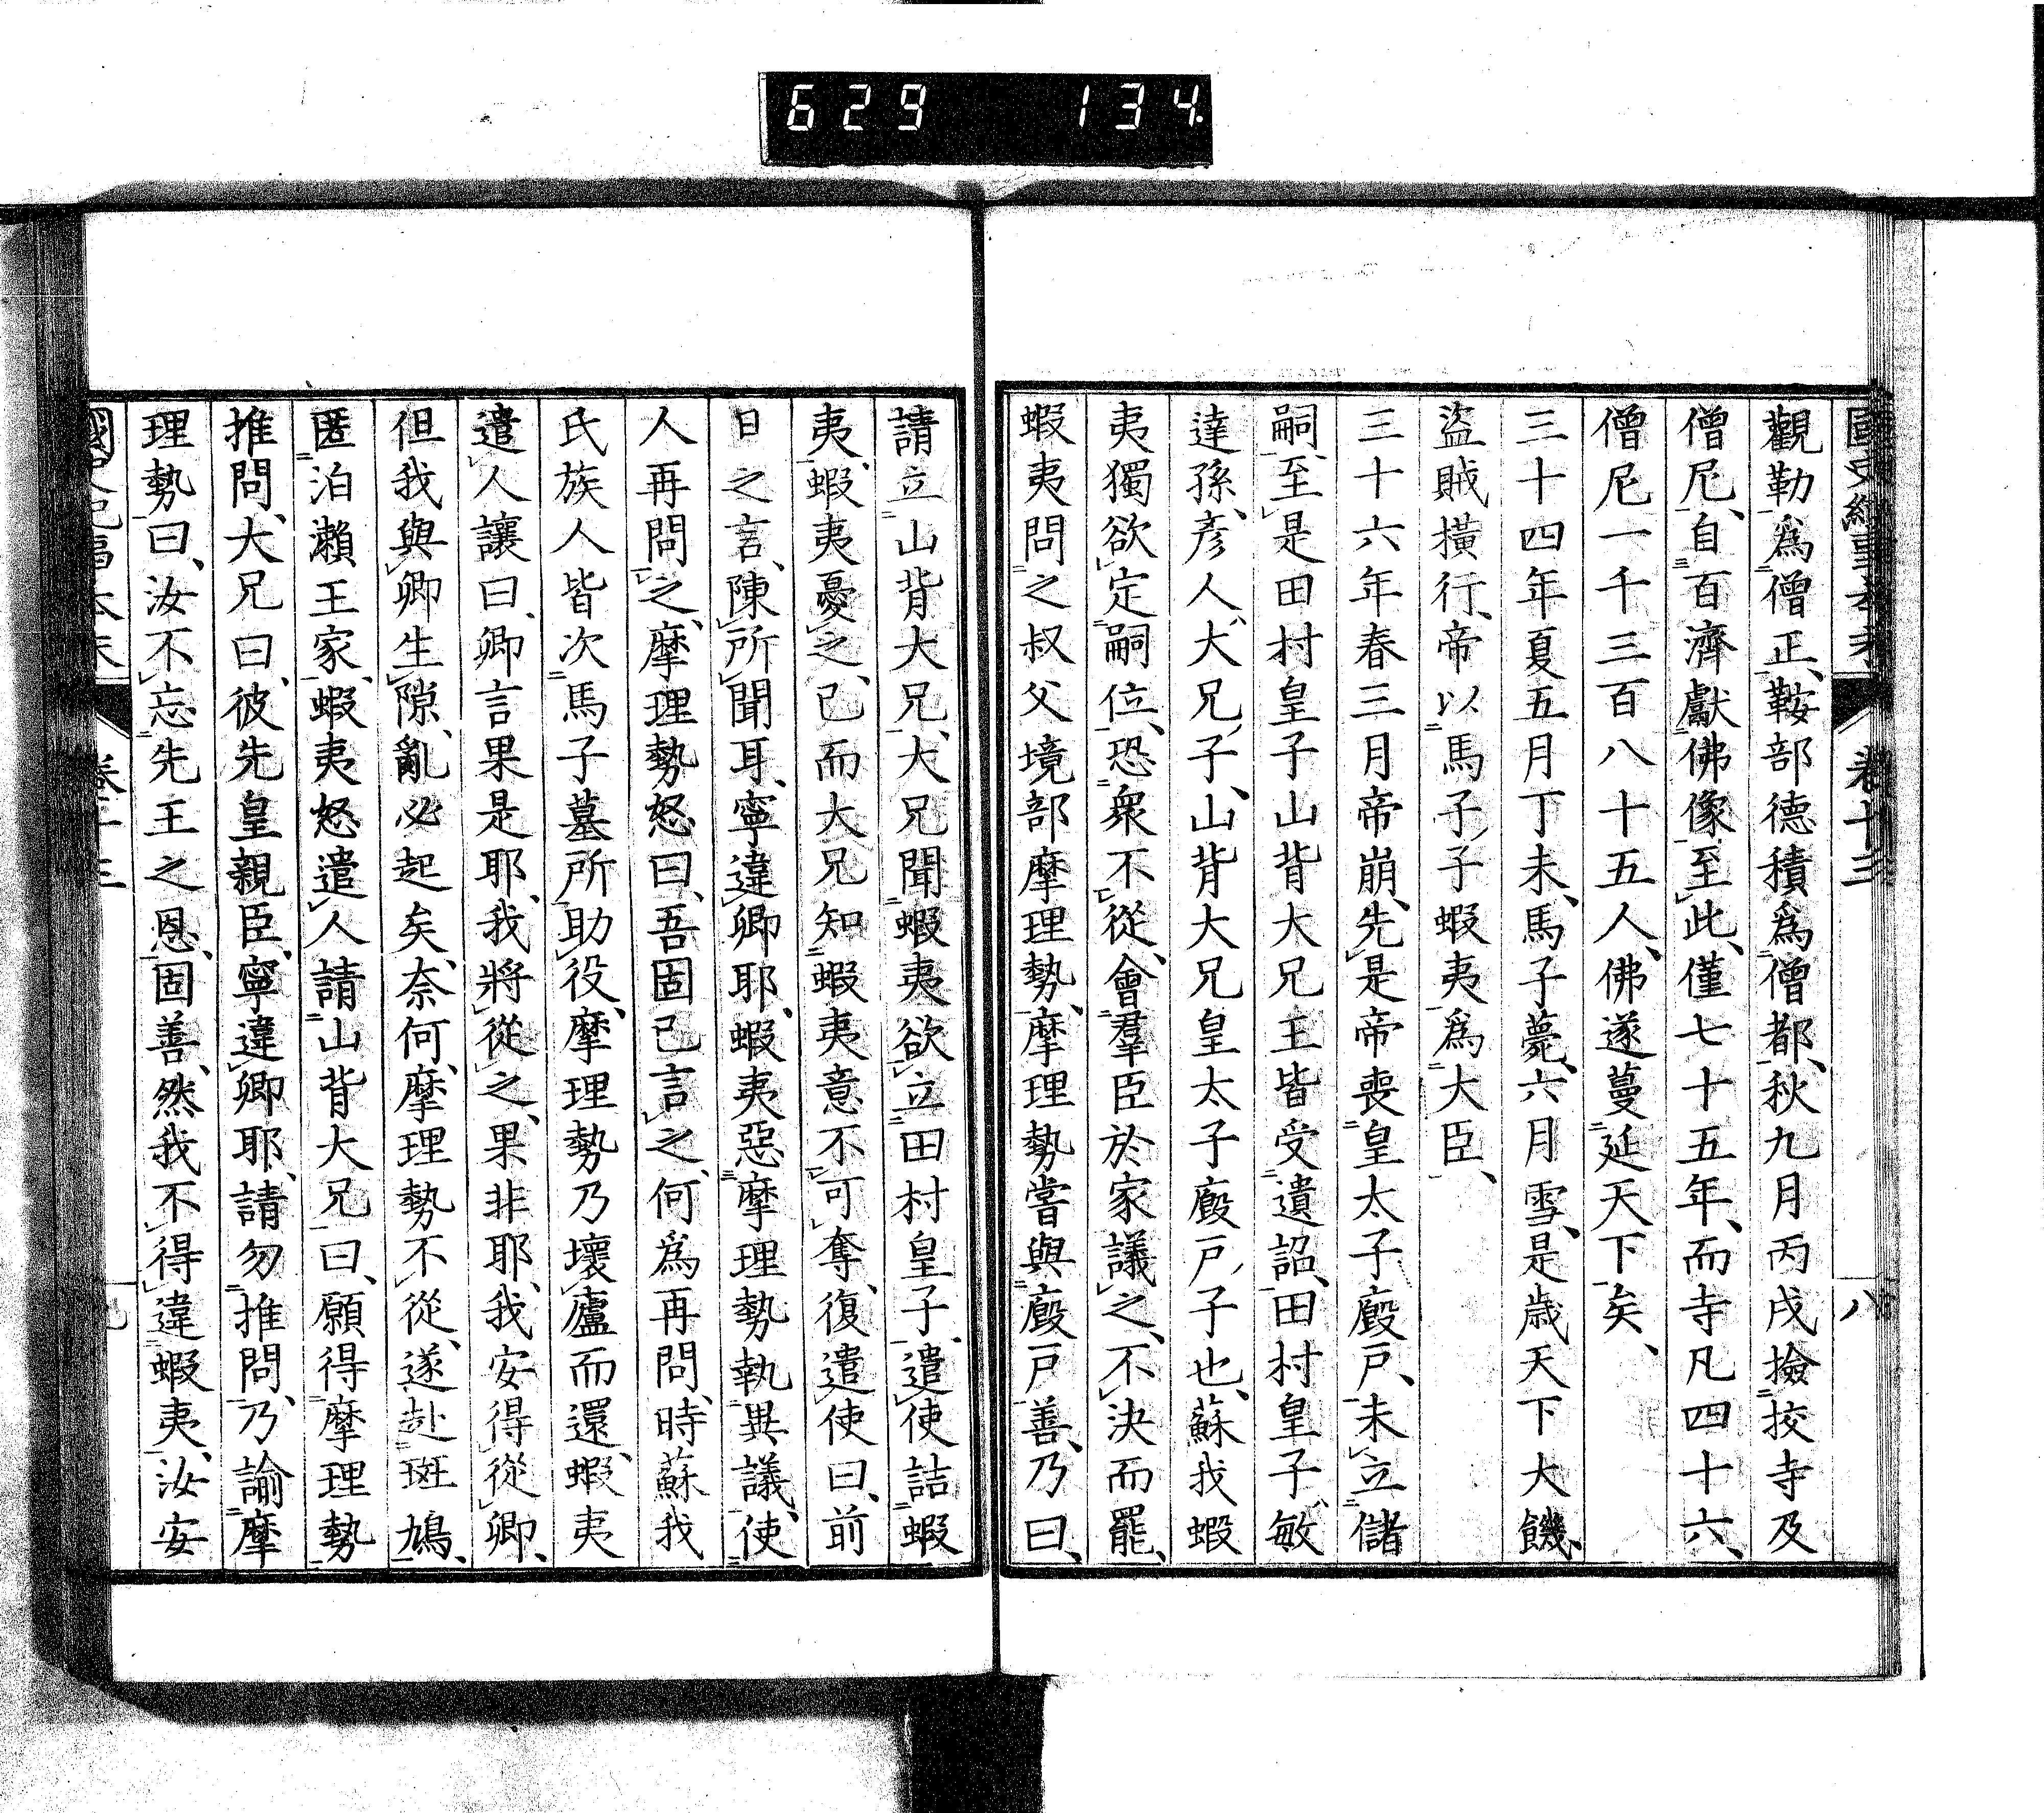 629 134
國史紀事本末 卷十三 八
觀勒爲僧正、鞍部德積爲僧都、秋九月丙戌撿挍寺及
僧尼、自百濟獻佛像至此、僅七十五年、而寺凡四十六、
僧尼一千三百八十五人、佛遂蔓延天下矣、
三十四年夏五月丁未、馬子薨、六月雪、是歲天下大饑、
盜賊橫行、帝以馬子子蝦夷爲大臣、
三十六年春三月帝崩、先是帝喪皇太子廄戶、未立儲
嗣、至是田村皇子山背大兄王皆受遺詔、田村皇子敏
達孫、彥人大兄子、山背大兄皇太子廄戶子也、蘇我蝦
夷獨欲定嗣位、恐衆不從、會羣臣於家議之、不決而罷、
蝦夷問之叔父境部摩理勢、摩理勢嘗與廄戶善、乃曰、
請立山背大兄、大兄聞蝦夷欲立田村皇子、遣使詰蝦
夷、蝦夷憂之、已而大兄知蝦夷意不可奪、復遣使曰、前
日之言、陳所聞耳、寧違卿耶、蝦夷惡摩理勢執異議、使
人再問之、摩理勢怒曰、吾固已言之、何爲再問、時蘇我
氏族人皆次馬子墓所助役、摩理勢乃壞廬而還、蝦夷
遣人讓曰、卿言果是耶、我將從之、果非耶、我安得從卿、
但我與卿生隙、亂必起矣、奈何、摩理勢不從、遂赴斑鳩、
匿泊瀨王家、蝦夷怒遣人請山背大兄曰、願得摩理勢
推問、大兄曰、彼先皇親臣、寧違卿耶、請勿推問、乃諭摩
理勢曰、汝不忘先王之恩、固善、然我不得違蝦夷、汝安
國史紀事本末 卷十三 九